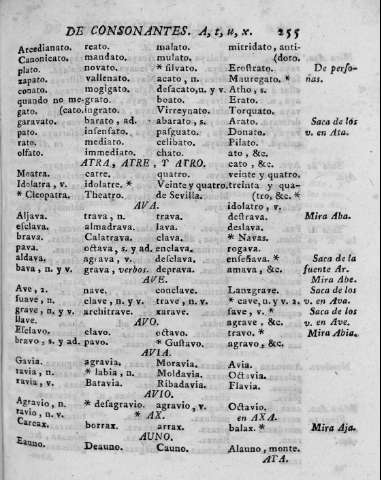 DE CONSONANTES. A, t, u, x. 255
Arcedianato. reato. malato. mitridato, anti-
Canonicato. mandato. mulato. (doto.
plato. novato. * silvato. Erostrato. De perso-
zapato. vallenato. acato, n. Mauregato. * nas.
conato. mogigato. desacato, n. y v. Atho, s.
quando no me-grato. boato. Erato.
gato. (cato. ingrato. Virreynato. Torquato.
garavato. barato, ad. abarato, s. Arato. Saca de los
pato. insensato. pasguato. Donato. v. en Ata.
rato. mediato. celibato. Pilato.
olfato. immediato. chato. cato, &c.
ATRA, ATRE, Y ATRO.
Moatra. catre. quatro. veinte y quatro.
Idolatra, v. idolatre. * Veinte y quatro. treinta y qua-
* Cleopatra. Theatro. de Sevilla. (tro, &c. *
AVA. idolatro, v.
Aljava. trava, n. trava. destrava. Mira Aba.
esclava. almadrava. lava. deslava.
brava. Calatrava. clava. * Navas.
pava. octava, s. y ad. enclava. rogava.
aldava. agrava, v. desclava. enseñava. * Saca de la
bava, n. y v. grava, verbos. deprava. amava, &c. fuente Ar.
AVE. Mira Abe.
Ave, 2. nave. conclave. Lanzgrave. Saca de los
suave, n. clave, n. y v. trave, n. v. * cave, n. y v. 2. v. en Ava.
grave, n. y v. architrave. xarave. save, v. * Saca de los
llave. AVO. agrave, &c. v. en Ave.
Esclavo. clavo. octavo. travo. * Mira Abia.
bravo, s. y ad. pavo. * Gustavo. agravo, &c.
AVIA.
Gavia. agravia. Moravia. Avia.
ravia, n. * labia, n. Moldavia. Octavia.
ravia, v. Batavia. Ribadavia. Flavia.
AVIO.
Agravio, n. * desagravio. agravio, v. Octavio.
ravio, n. v. * AX. en AXA.
Carcax. borrax. arrax. balax. * Mira Aja.
AUNO.
Eauno. Deauno. Cauno. Alauno, monte.
ATA.